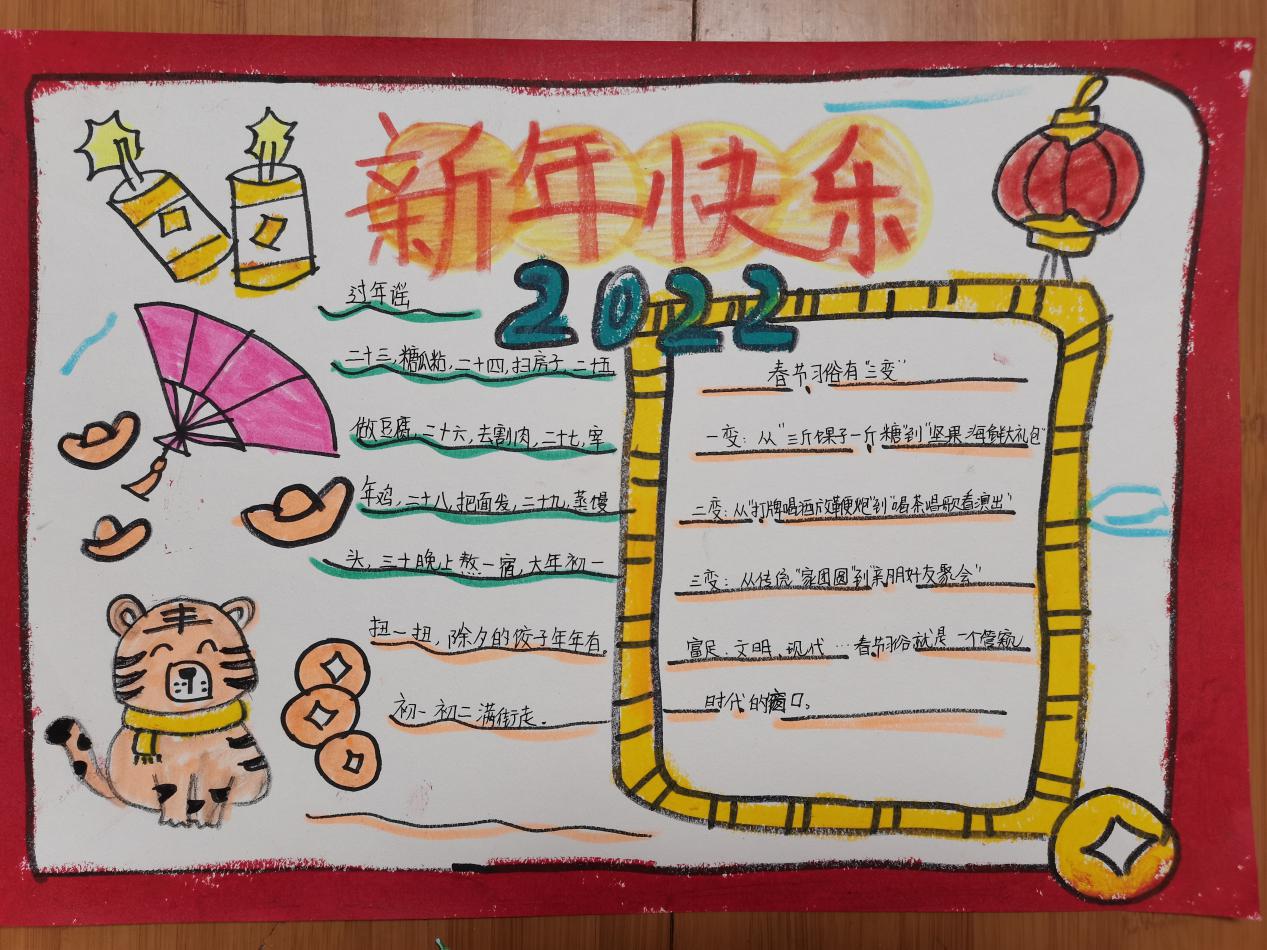 新年快乐
2022
过年谣
二十三,糖瓜粘,二十四,扫房子,二十五
做豆腐,二十六,去割肉,二十七,宰
年鸡,二十八,把面发,二十九,蒸馒
头,三十晚上熬一宿,大年初一
扭一扭,除夕的饺子年年有,
初一初二满街走.
春节习俗有"三变"
一变:从"三斤馃子一斤糖"到"坚果海鲜大礼包"
二变:从"打牌喝酒放鞭炮"到"喝茶唱歌看演出"
三变:从传统"家团圆"到"亲朋好友聚会"
富足、文明、现代…春节习俗就是一个管窥
时代的窗口。